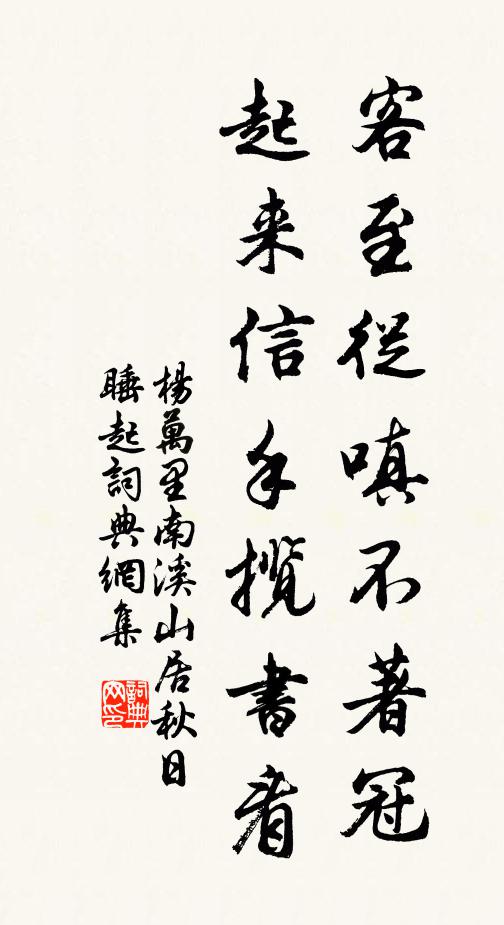 客至從嗔不著冠
起来信手攬書看
楊萬里南溪山居秋日
睡起詞典網集
詞典网印